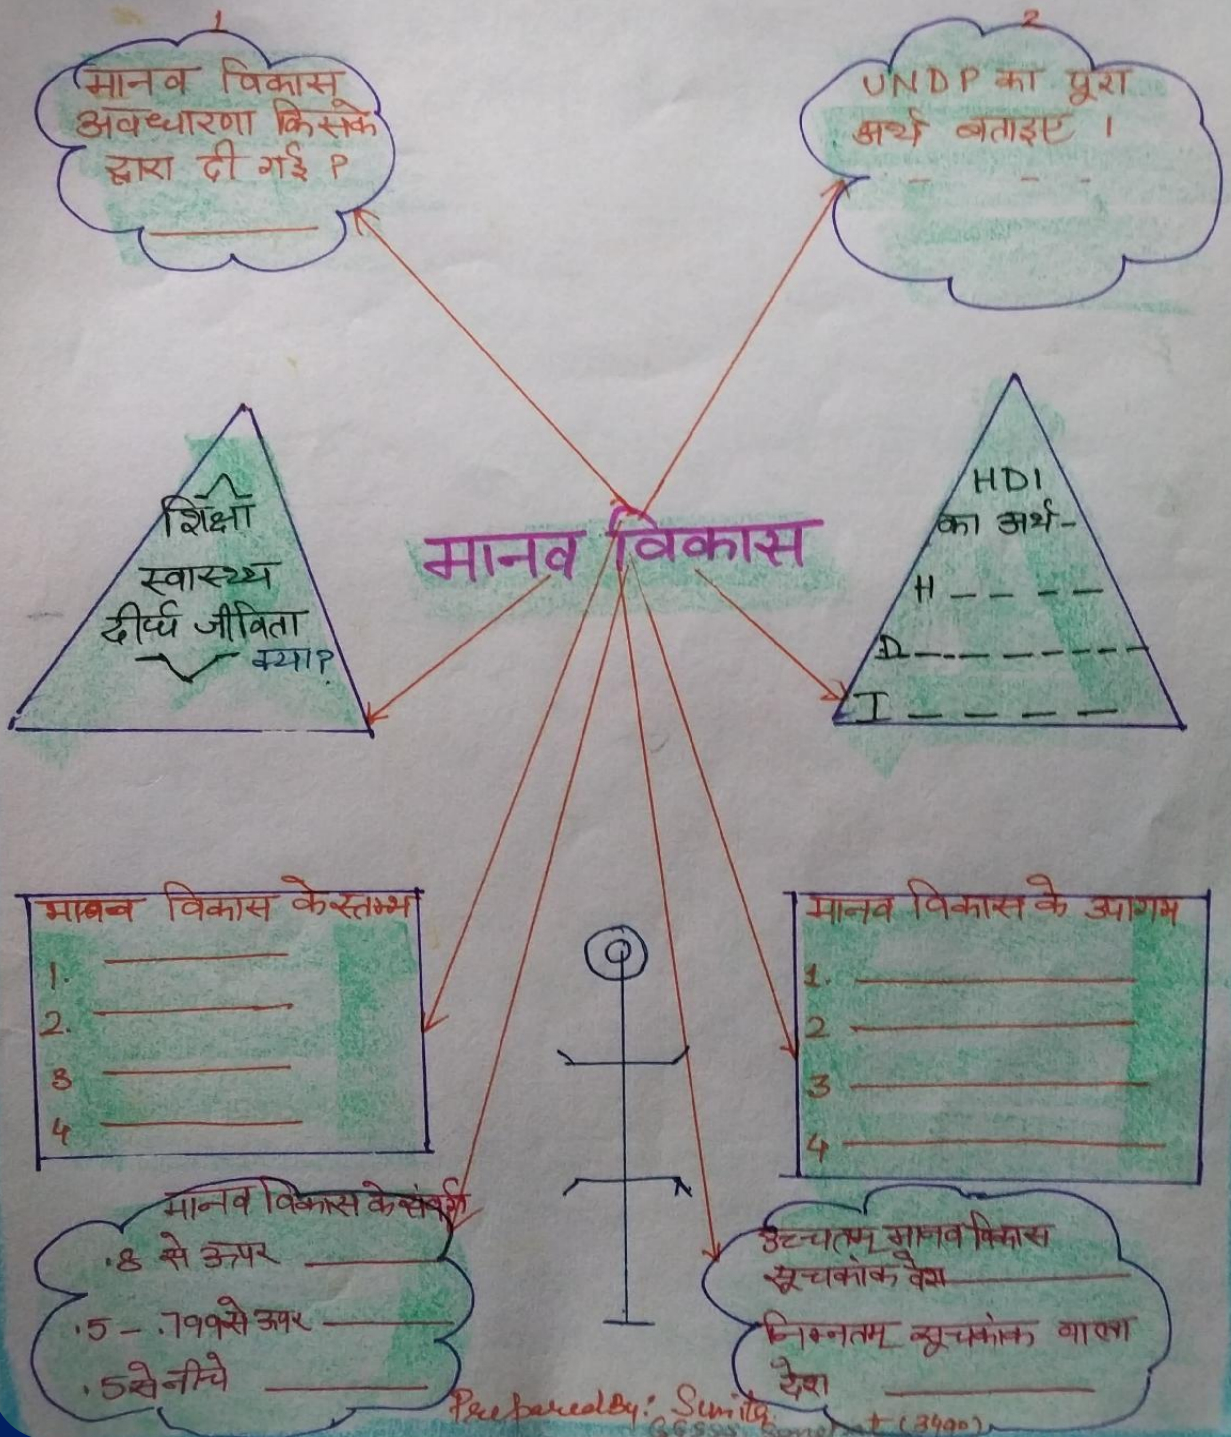 1
मानव विकास
अवधारणा किसके
द्वारा दी गई ?
2
UNDP का पूरा
अर्थ बताइए ।
शिक्षा
स्वास्थ्य
दीर्घ जीविता
क्या?
मानव विकास
HDI
का अर्थ-
H
D
I
मानव विकास के स्तम्भ
1.
2.
3
4
मानव विकास के उपागम
1.
2
3
4
मानव विकास के संवर्ग
.8 से ऊपर
.5 - .799 से ऊपर
.5 से नीचे
उच्चतम् मानव विकास
सूचकांक देश
निम्नतम् सूचकांक वाला
देश
Prepared By: Sunita
(3490)